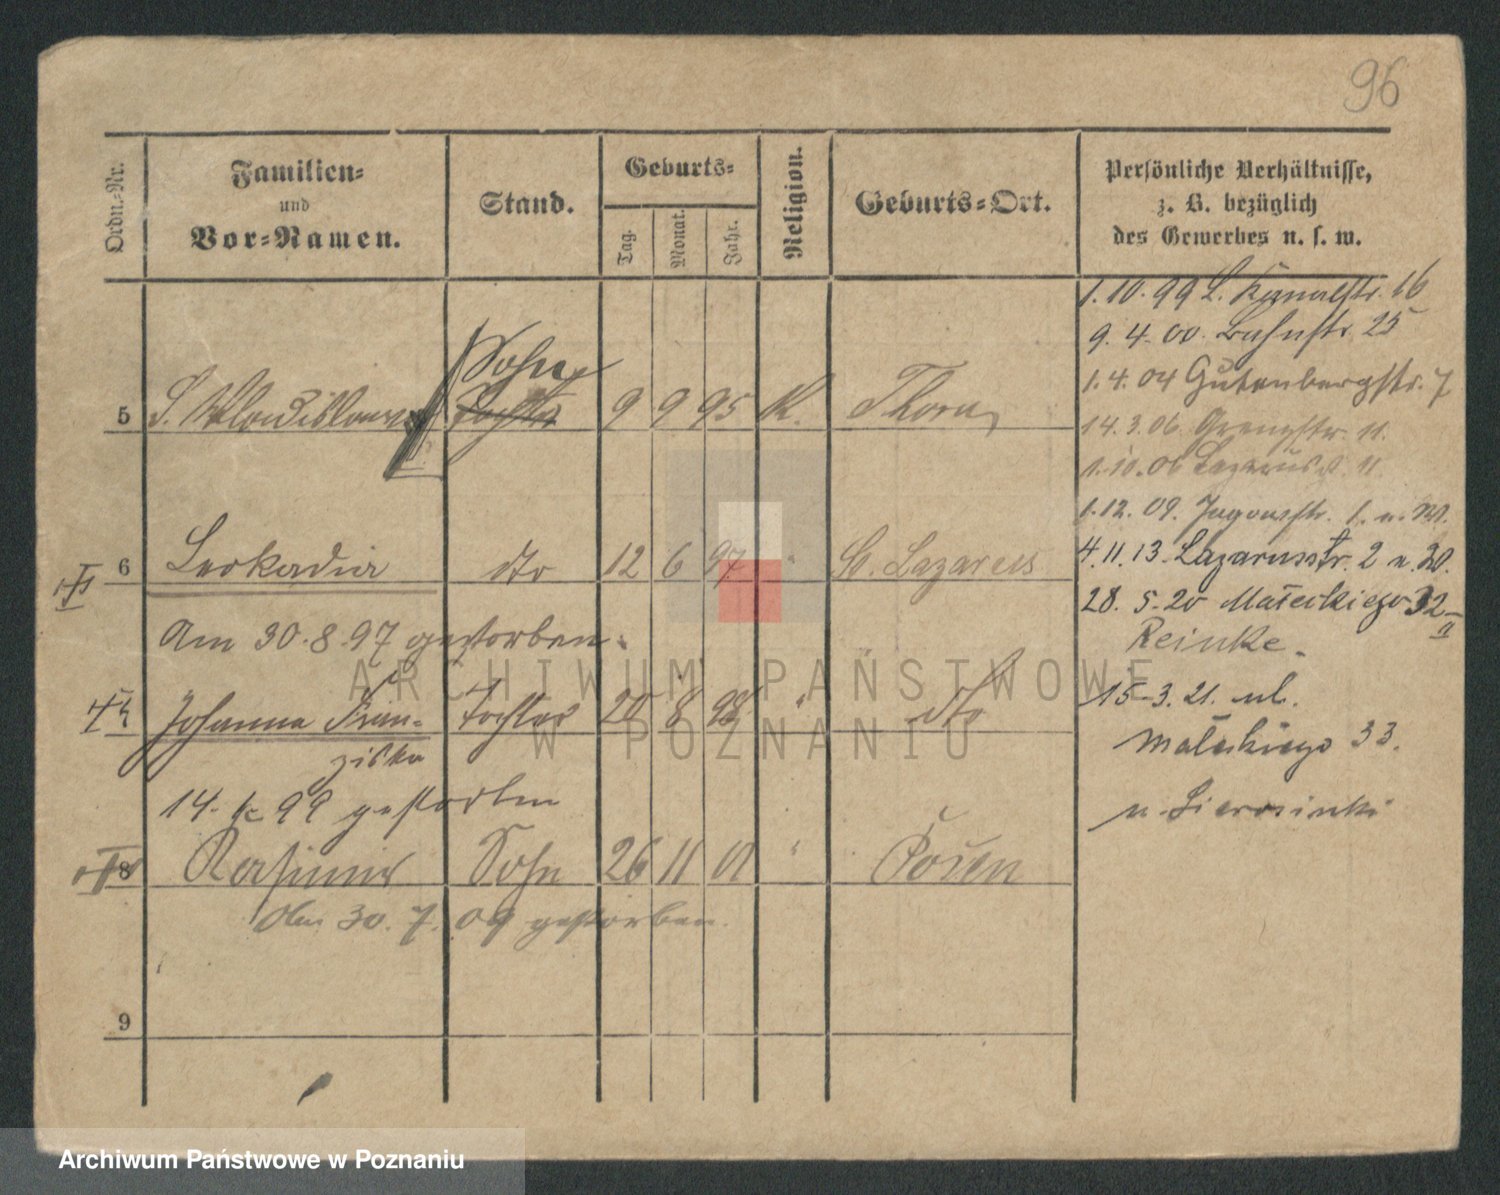 96
Ordn.-Nr.
Familien-
und
Vor-Namen.
Stand.
Geburts-
Tag.
Monat.
Jahr.
Religion.
Geburts-Ort.
Persönliche Verhältnisse,
z. B. bezüglich
des Gewerbes u. s. w.
1.10.99 L. Kanalstr. 16
9.4.00. Bahnstr. 25
1.4.04 Gutenbergstr. 7
14.3.06. Grenzstr. 11.
1.10.06 Lazarusstr. 11
1.12.09. Jagowstr. 1.
4.11.13. Lazarusstr. 2
28.5.20 Małeckiego 32
Reinke.
15-3.21. ul.
Małeckiego 33.
Sohn
5 Wladislaus Tochter 9 9 95 K. Thorn
6 Leokadia dto 12 6 97 " St. Lazarus
Am 30.8.97 gestorben.
Johanna Fran- Tochter 20 8 98 " dto
ziska
14. 99 gestorben
8 Kasimir Sohn 26 11 01 " Posen
Am 30.7.09 gestorben.
9
ARCHIWUM PAŃSTWOWE
W POZNANIU
Archiwum Państwowe w Poznaniu